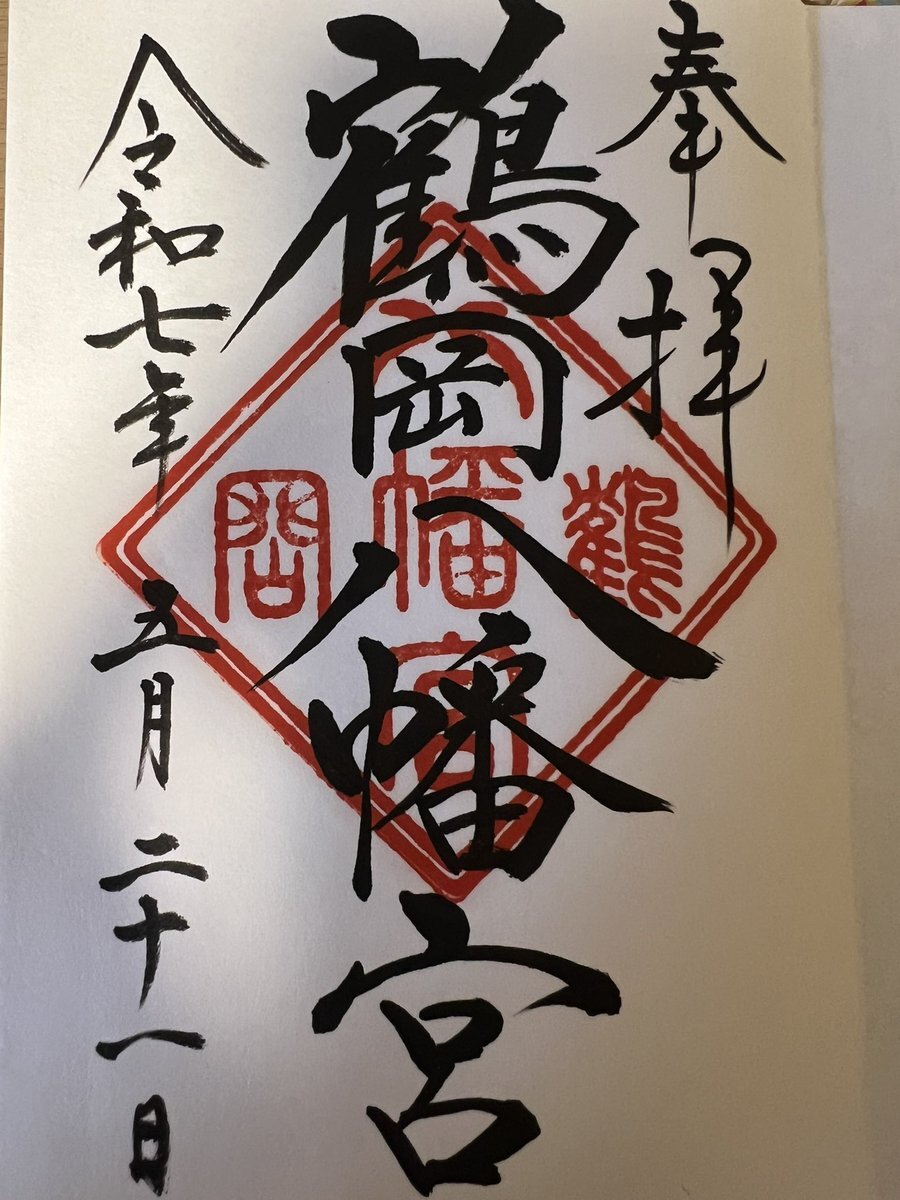 奉拝
鶴岡八幡宮
令和七年五月二十一日
鶴
八幡宮
岡